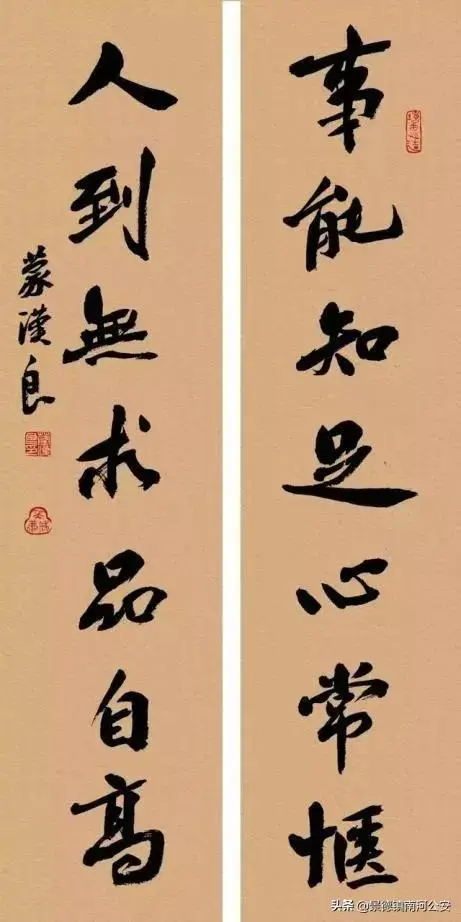 事能知足心常愜
人到無求品自高
蒙漢良
头条 @景德镇南河公安